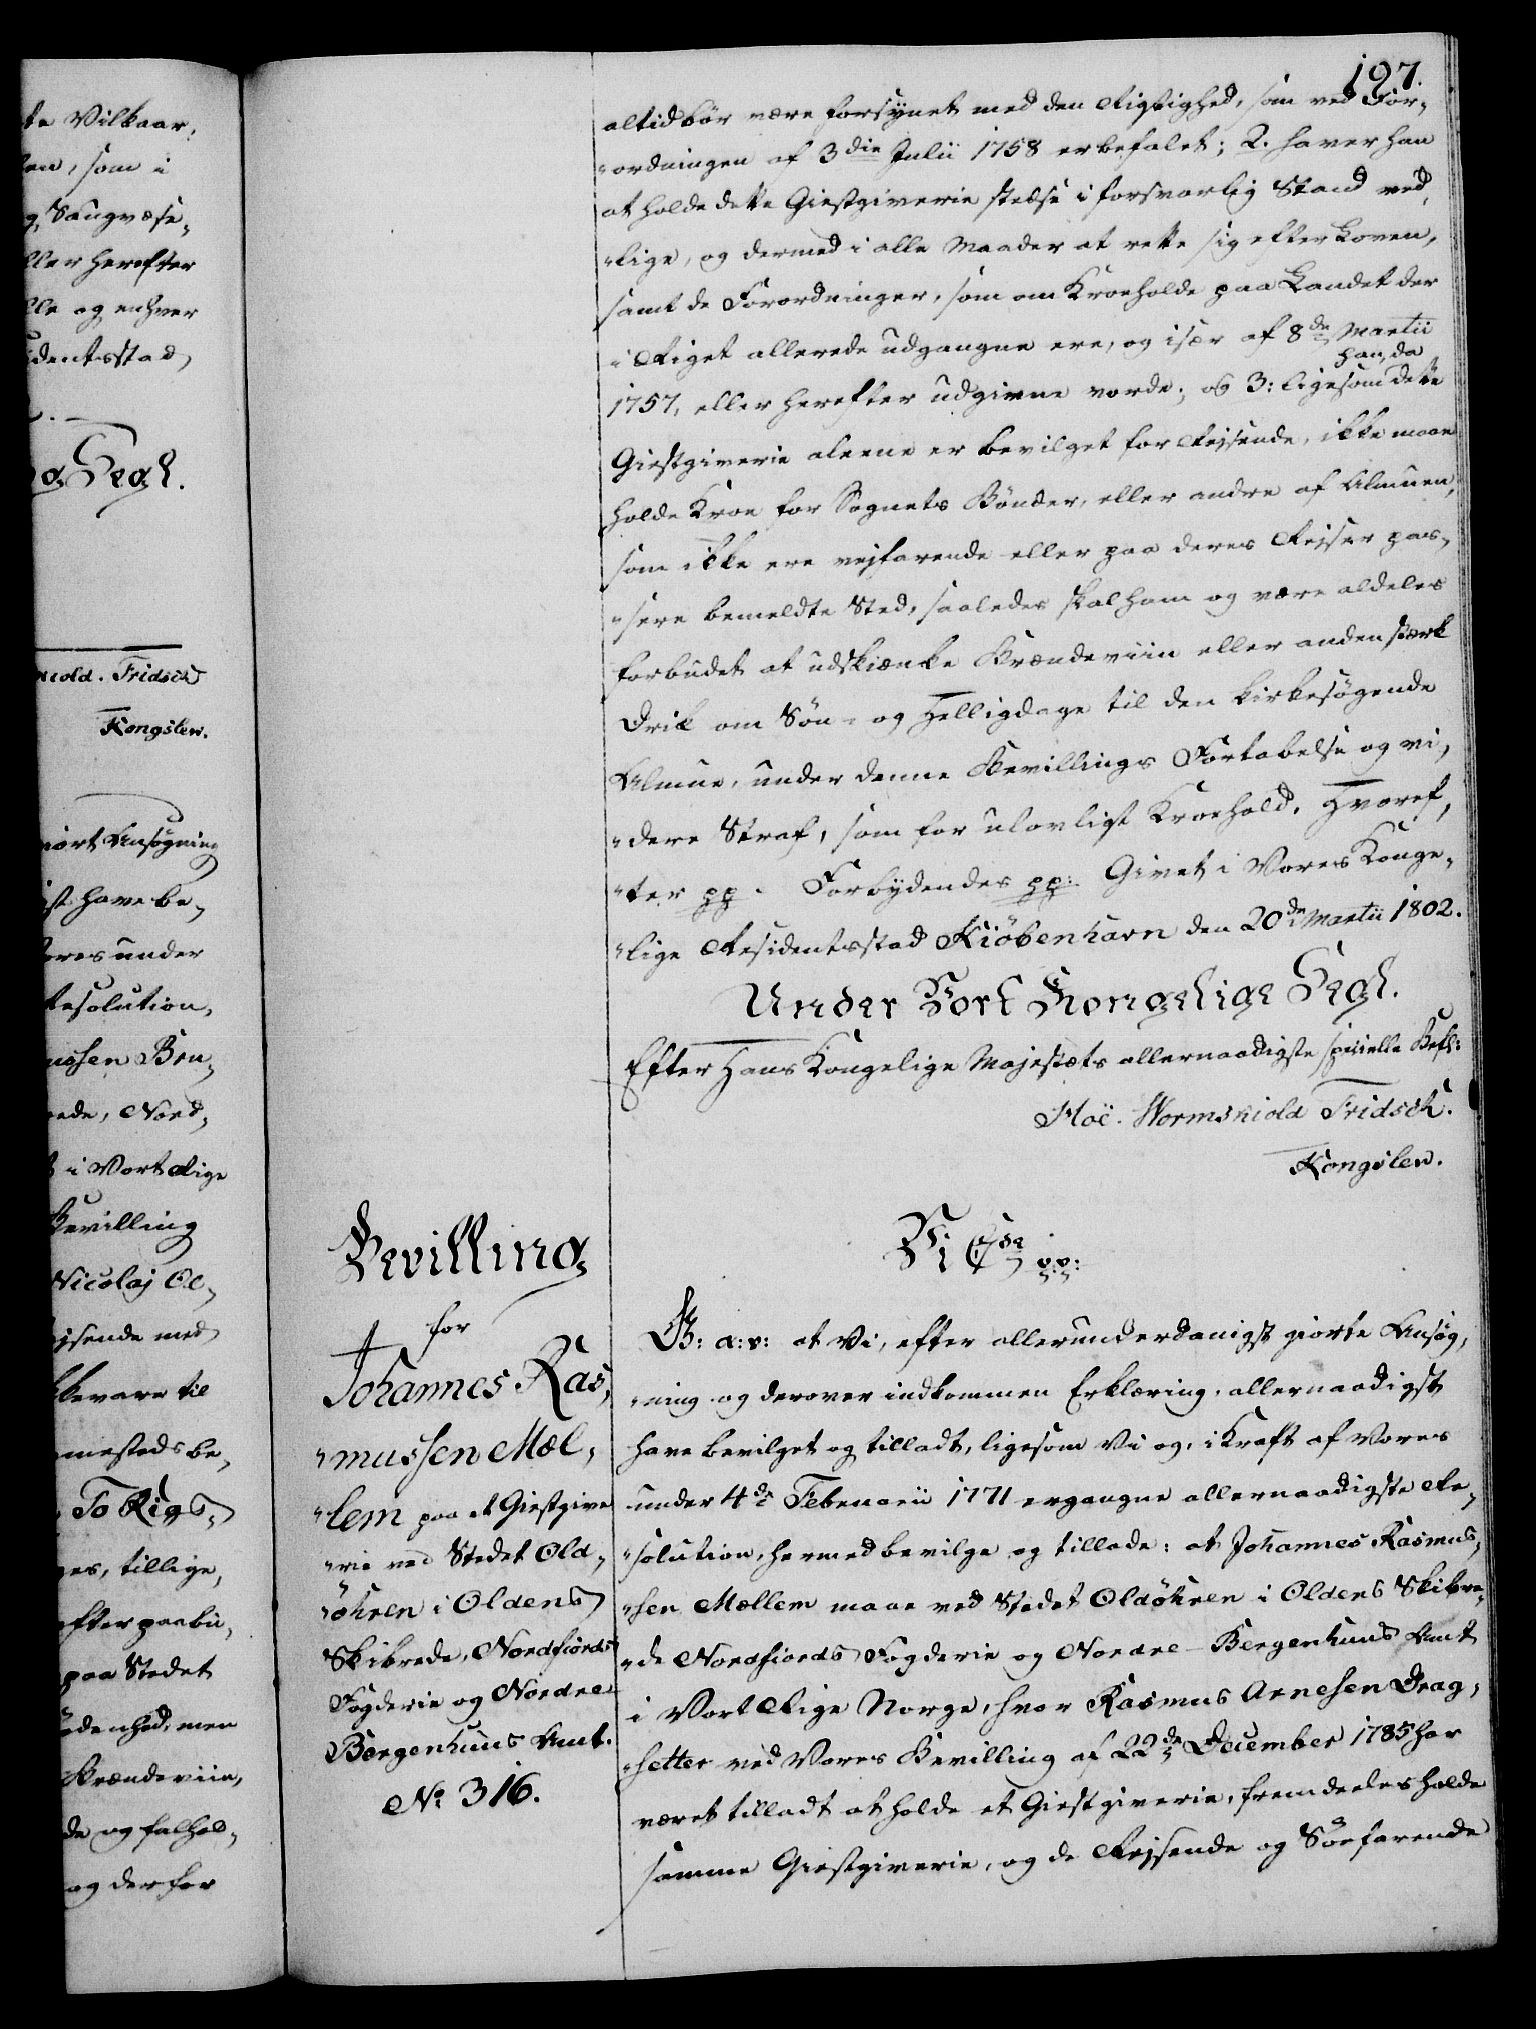 te Vilkaar,
ten, som i
g, Saugvæse,
ller herefter
lle og enhver
identsstad
og Segl.
skiold. Fridsch
Kongslew.
giort Ansøgning
gst have be„
Vores under
Resolution,
mussen Bru„
rede, Nord„
t i Vort Rige
Bevilling
Nicolaj Ol„
ejsende med
kevare til
mesteds be„
To Rigs„
ges, tillige,
efter paabü„
paa Stedet
edenhed, men
Brændeviin,
de og falhol„
og derfor
197.
altid bör være forsynet med den Rigtighed, som ved For„
„ordningen af 3die Julii 1758 er befalet; 2. haver han
at holde dette Giestgiverie stedse i forsvarlig Stand ved„
„lige, og dermed i alle Maader at rette sig efter Loven,
samt de Forordninger, som om Kroehold paa Landet der
i Riget allerede udgangne ere, og især af 8de Martii
han, da
1757, eller herefter udgivne vorde; og 3: ligesom dette
Giestgiverie aleene er bevilget for Rejsende, ikke maae
holde Kroe for Sognets Bönder, eller andre af Almuen,
som ikke ere vejfarende eller paa deres Rejser pas„
„sere bemeldte Sted, saaledes skal ham og være aldeles
forbudet at udskiænke Brændeviin eller anden stærk
Drik om Søn- og Helligdage til den kirkesögende
Almue, under denne Bevillings Fortabelse og vi„
„dere Straf, som for ulovligt Kroehold. Hvoref„
„ter pp. Forbydendes pp: Givet i Vores Konge„
„lige Residentsstad Kiöbenhavn den 20de Martii 1802.
Under Vort Kongelige Segl.
Efter Hans Kongelige Majestæts allernaadigste specielle Befl:
Moe. Wormskiold Fridsch.
Kongslew.
Bevilling
for
Johannes Ras„
„mussen Mæl„
„lem paa et Giestgive
„rie ved Stedet Old„
„öhren i Oldens
Skibrede, Nordfiords
Fogderie og Nordre
Bergenhuus Amt.
No 316.
Vi C 7de pp:
G: a: v: at Vi, efter allerunderdanigst giorte Ansøg„
„ning og derover indkommen Erklæring, allernaadigst
have bevilget og tilladt, ligesom Vi og, i Kraft af Vores
under 4de Februarii 1771 ergangne allernaadigste Re„
„solution, hermed bevilge og tillade: at Johannes Rasmus„
„sen Mællem maae ved Stedet Oldöhren i Oldens Skibre„
„de Nordfiords Fogderie og Nordre Bergenhuus Amt
i Vort Rige Norge, hvor Rasmus Arnesen Drag„
„setter ved Vores Bevilling af 22de December 1785 har
været tilladt at holde et Giestgiverie, fremdeeles holde
samme Giestgiverie, og de Rejsende og Söefarende